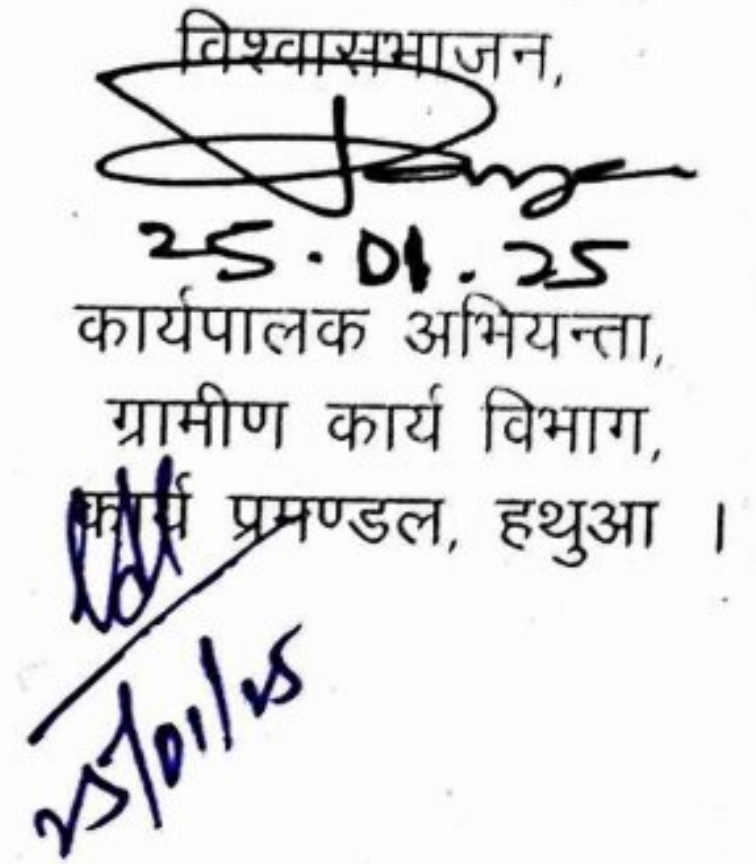 विश्वासभाजन,
25.01.25
कार्यपालक अभियन्ता,
ग्रामीण कार्य विभाग,
कार्य प्रमण्डल, हथुआ ।
25/01/25